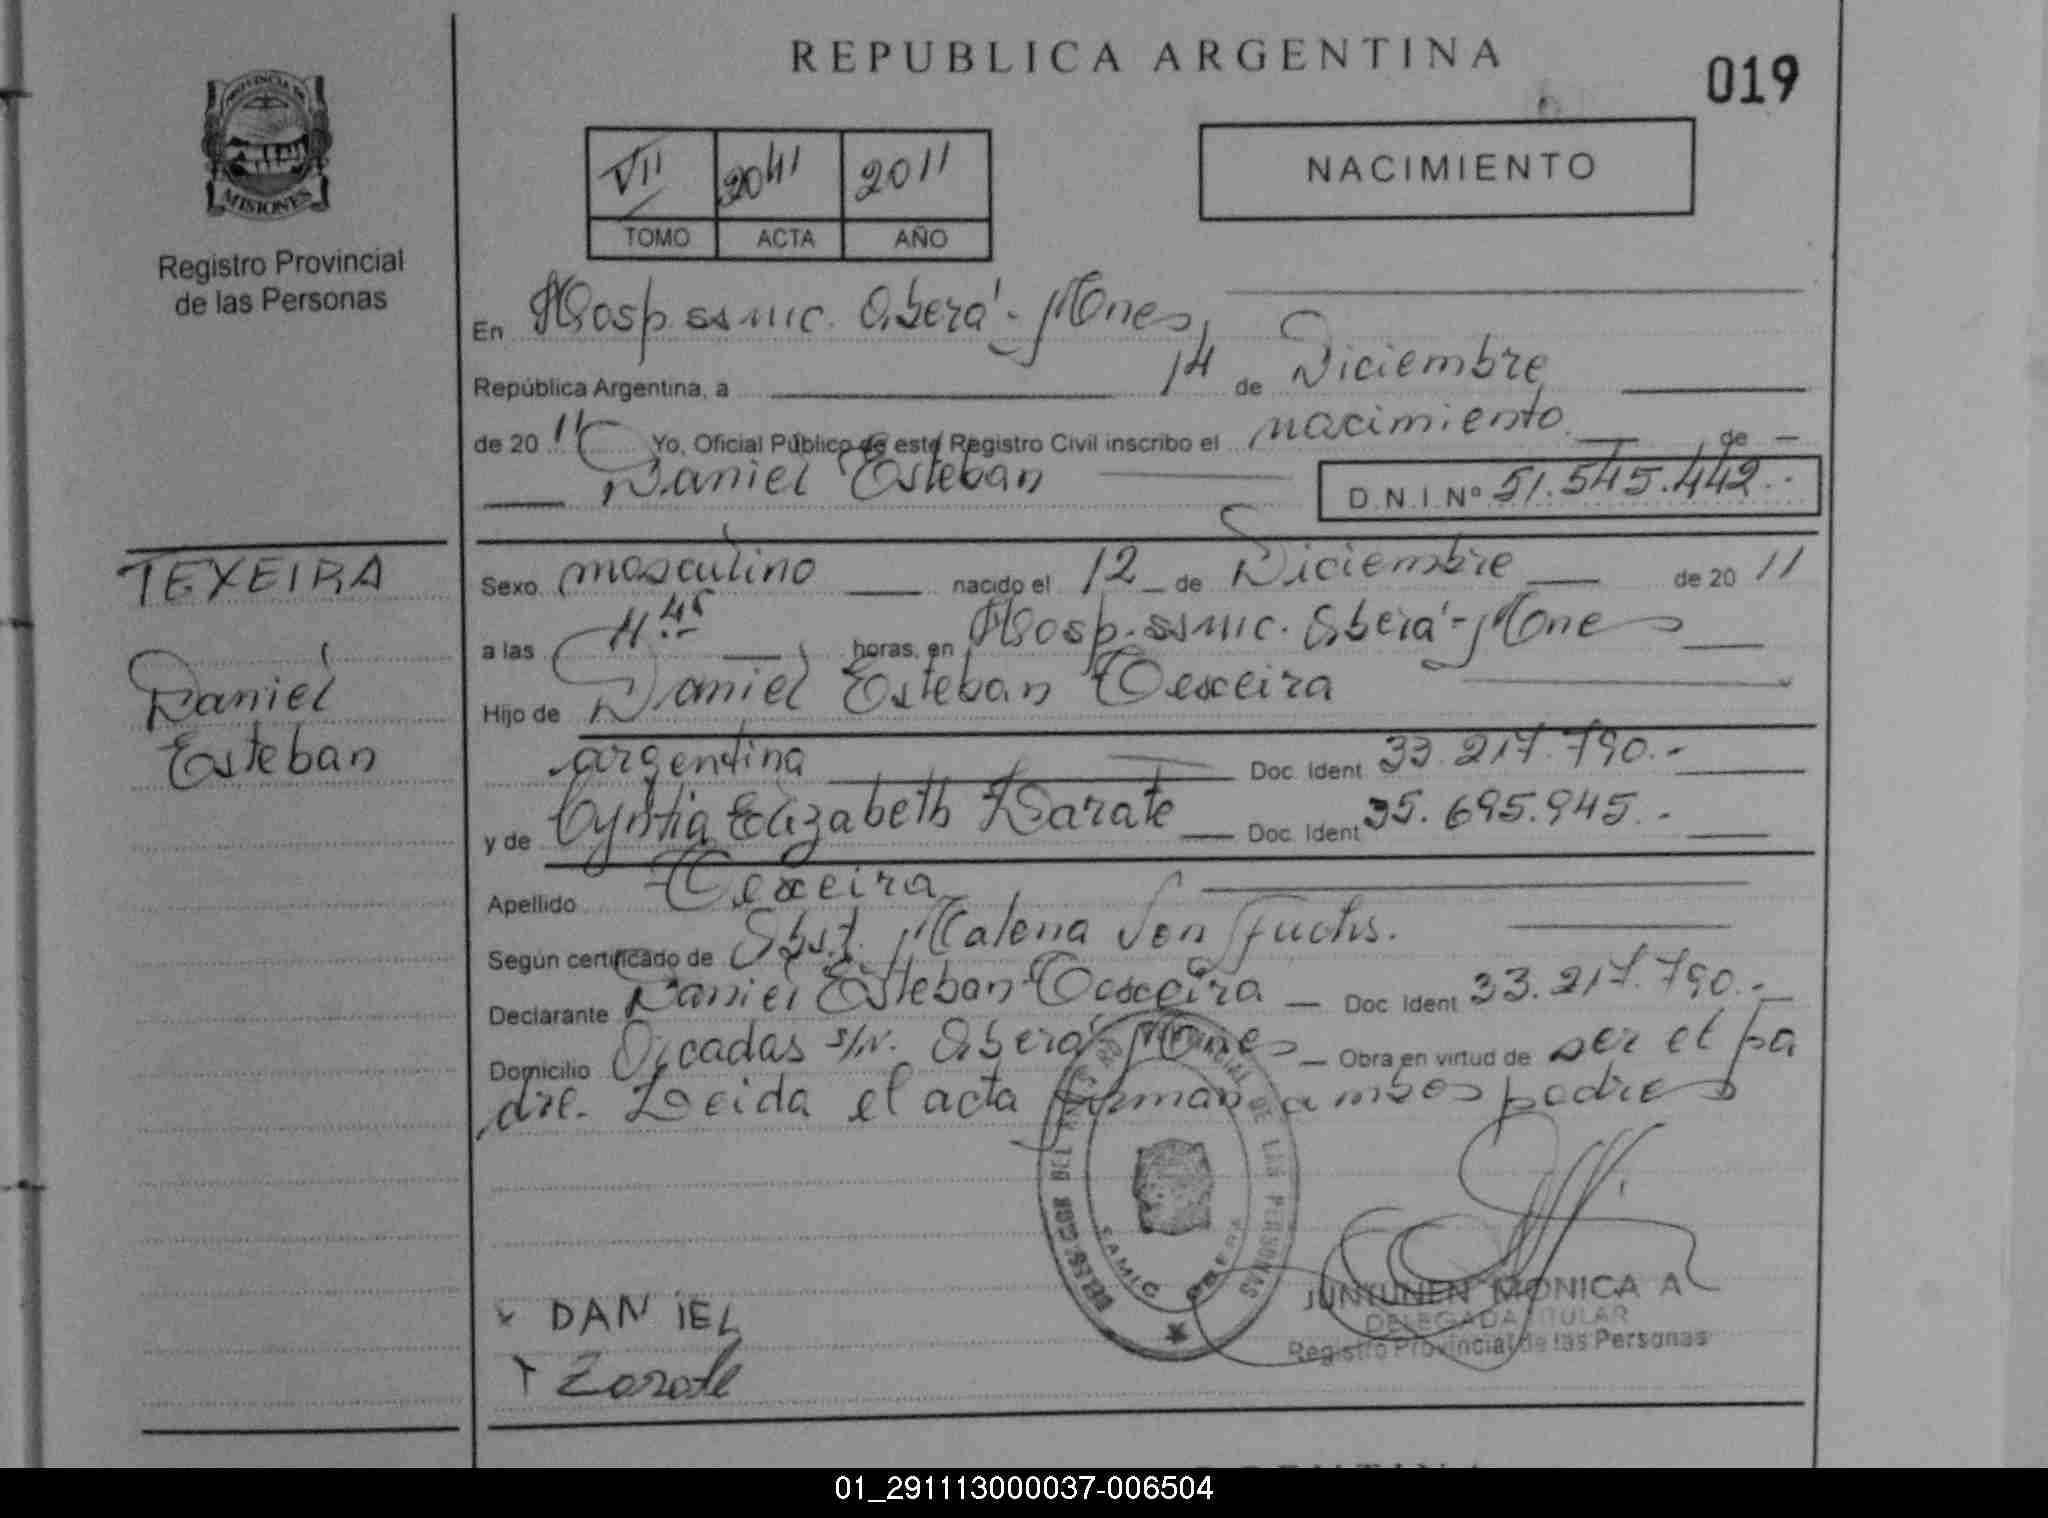 REPUBLICA ARGENTINA
019
PROVINCIA DE
MISIONES
Registro Provincial
de las Personas
VII 2041 2011
TOMO ACTA AÑO
NACIMIENTO
En Hosp. SAMIC. Oberá - Mnes,
República Argentina, a 14 de Diciembre
de 20 11 Yo, Oficial Público de este Registro Civil inscribo el nacimiento de
Daniel Esteban D.N.I. Nº 51.545.442.-
TEXEIRA
Daniel
Esteban
Sexo masculino nacido el 12 de Diciembre de 20 11
a las 11.45 horas, en Hosp. SAMIC. Oberá - Mnes
Hijo de Daniel Esteban Texeira
argentina Doc. Ident 33.217.790.-
y de Cyntia Elizabeth Zarate Doc. Ident 35.695.945.-
Apellido Texeira
Según certificado de Obst. Malena Von Fuchs.
Declarante Daniel Esteban Texeira Doc Ident 33.217.790.-
Domicilio Picadas s/n. Oberá Mnes Obra en virtud de ser el pa
dre. Leida el acta firman ambos padres
DEL REGISTRO PROVINCIAL DE LAS PERSONAS
SAMIC OBERA
DANIEL
Zarate
JUNTUNEN MONICA A
DELEGADA TITULAR
Registro Provincial de las Personas
01_291113000037-006504